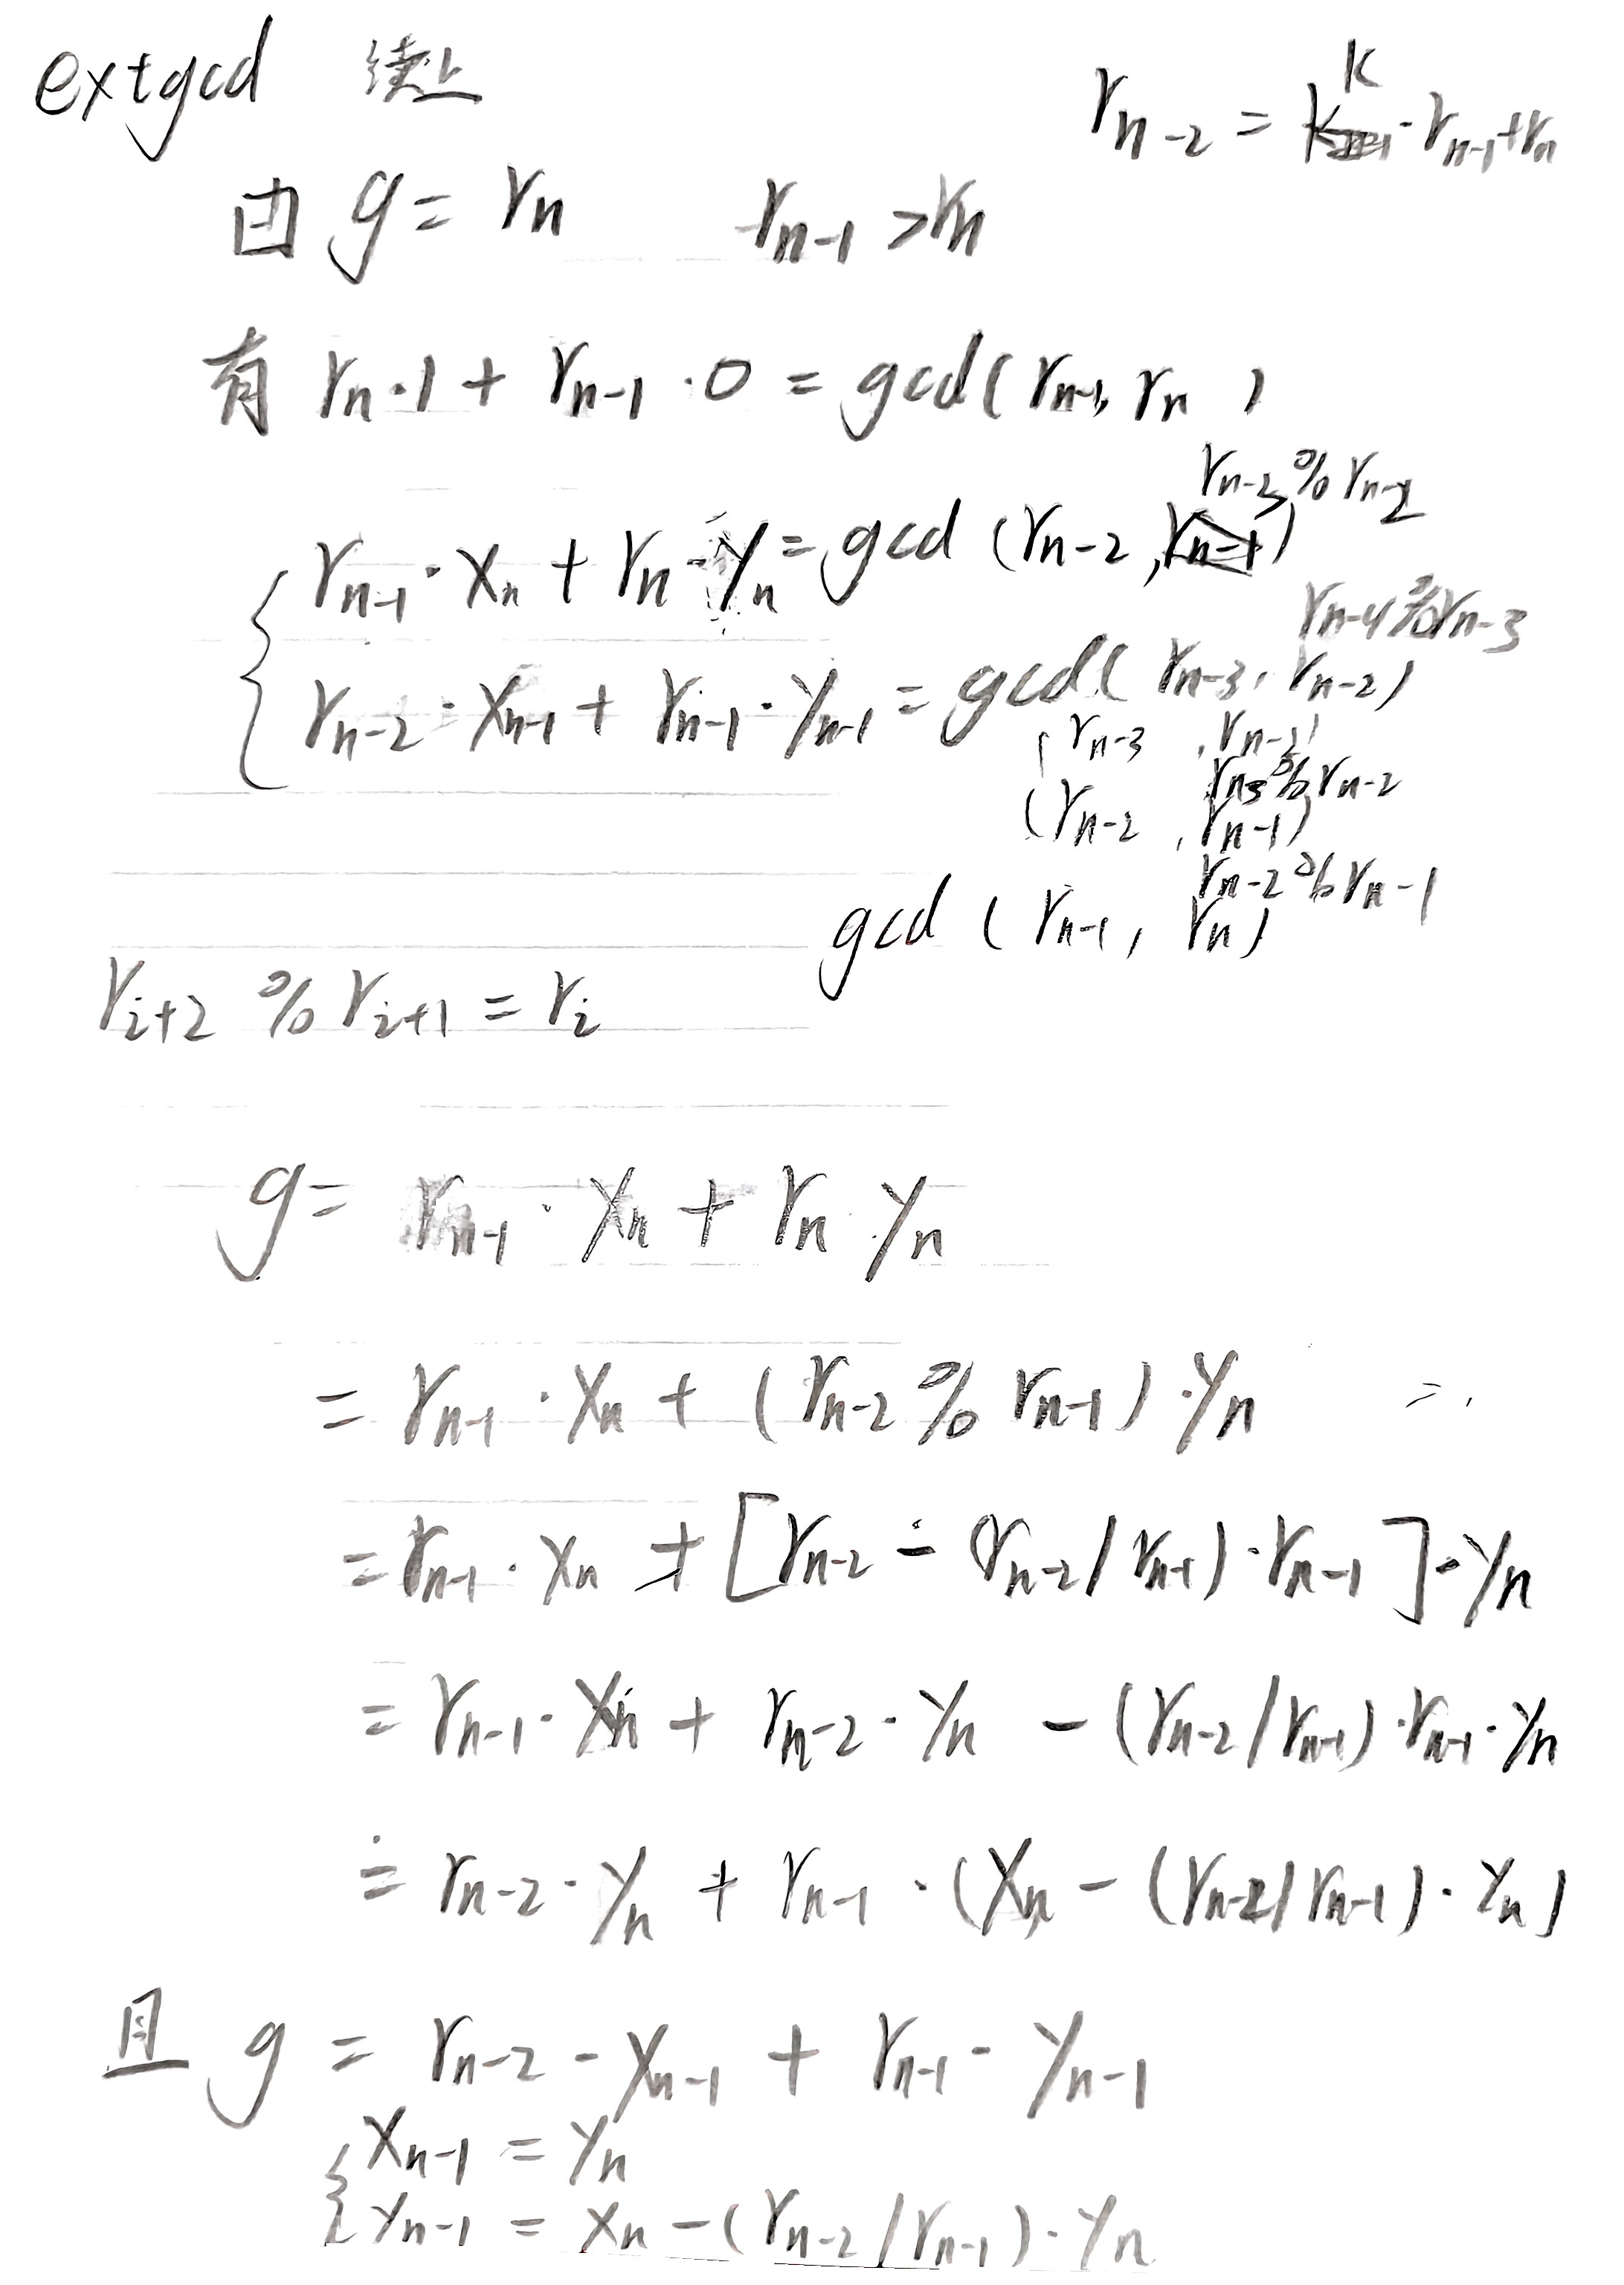 extgcd 续上
r_{n-2} = k·r_{n-1}+r_n
由 g = r_n r_{n-1} > r_n
有 r_n·1 + r_{n-1}·0 = gcd(r_{n-1}, r_n)
r_{n-3}%r_{n-2}
r_{n-1}·x_n + r_n·y_n = gcd(r_{n-2}, r_{n-1})
r_{n-4}%r_{n-3}
r_{n-2}·x_{n-1} + r_{n-1}·y_{n-1} = gcd(r_{n-3}, r_{n-2})
(r_{n-3}, r_{n-2})
r_{n-3}%r_{n-2}
(r_{n-2}, r_{n-1})
r_{n-2}%r_{n-1}
gcd(r_{n-1}, r_n)
r_{i+2} % r_{i+1} = r_i
g = r_{n-1}·x_n + r_n·y_n
= r_{n-1}·x_n + (r_{n-2} % r_{n-1})·y_n =
= r_{n-1}·x_n + [r_{n-2} - (r_{n-2}/r_{n-1})·r_{n-1}]·y_n
= r_{n-1}·x_n + r_{n-2}·y_n - (r_{n-2}/r_{n-1})·r_{n-1}·y_n
= r_{n-2}·y_n + r_{n-1}·(x_n - (r_{n-2}/r_{n-1})·y_n)
且 g = r_{n-2}·x_{n-1} + r_{n-1}·y_{n-1}
{ x_{n-1} = y_n
y_{n-1} = x_n - (r_{n-2}/r_{n-1})·y_n